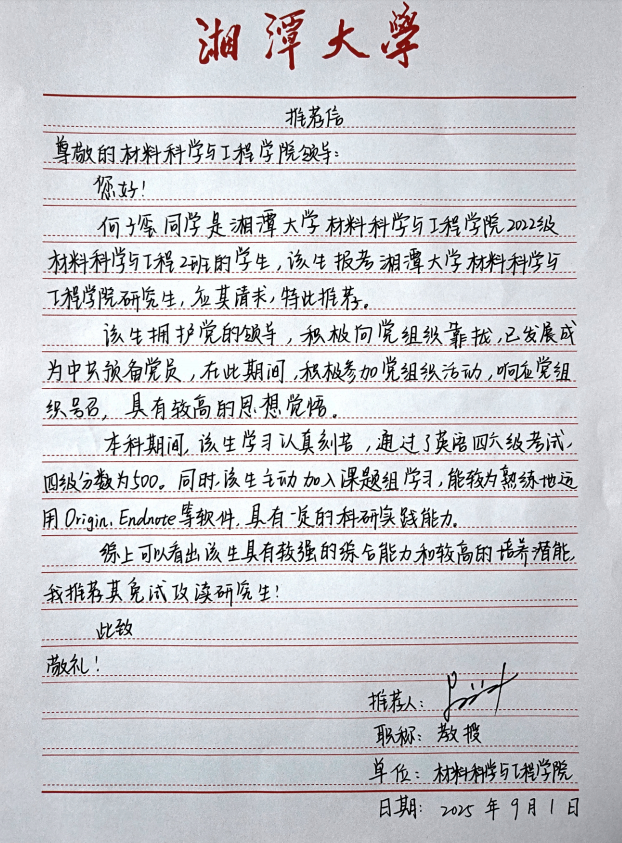 湘潭大學
推荐信
尊敬的材料科学与工程学院领导:
您好!
何子 同学是湘潭大学材料科学与工程学院2022级
材料科学与工程2班的学生,该生报考湘潭大学材料科学与
工程学院研究生,应其请求,特此推荐。
该生拥护党的领导,积极向党组织靠拢,已发展成
为中共预备党员,在此期间,积极参加党组织活动,响应党组
织号召,具有较高的思想觉悟。
本科期间,该生学习认真刻苦,通过了英语四六级考试,
四级分数为500。同时,该生主动加入课题组学习,能较为熟练地运
用Origin、Endnote等软件,具有一定的科研实践能力。
综上可以看出该生具有较强的综合能力和较高的培养潜能,
我推荐其免试攻读研究生!
此致
敬礼!
推荐人:
职称: 教授
单位: 材料科学与工程学院
日期: 2025年9月1日